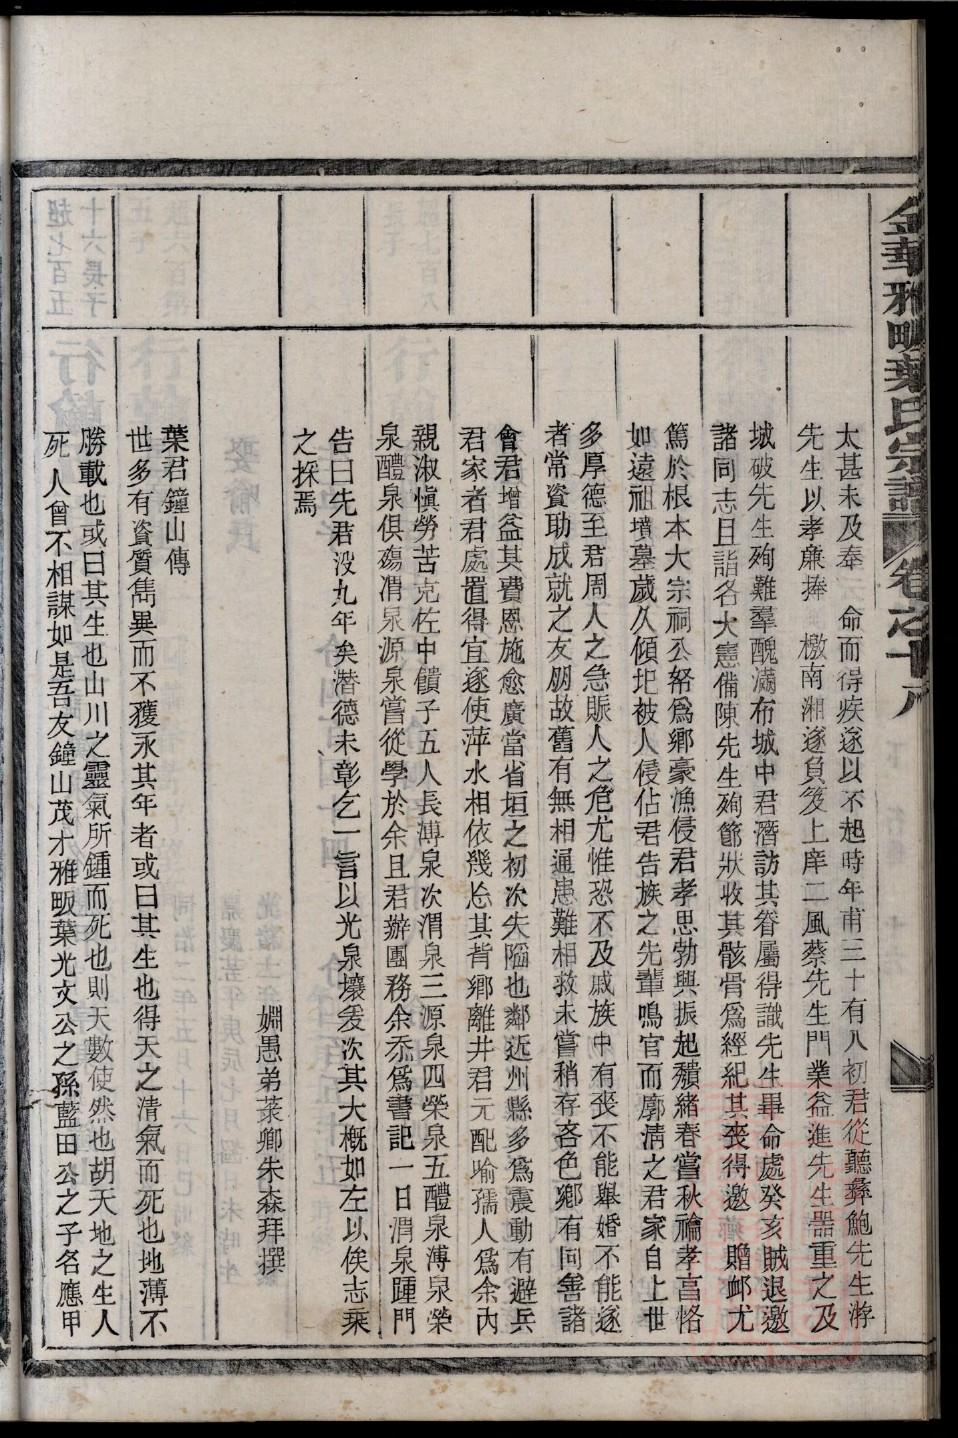 金華雅畈葉氏宗譜 卷之十八
太甚未及奉 命而得疾遂以不起時年甫三十有八初君從聽彝鮑先生游
先生以孝廉捧 檄南湘遂負笈上庠二風蔡先生門業益進先生器重之及
城破先生殉難羣醜滿布城中君潛訪其眷屬得識先生畢命處癸亥賊退邀
諸同志且詣各大憲備陳先生殉節狀收其骸骨爲經紀其喪得邀 贈卹尤
篤於根本大宗祠公帑爲鄉豪漁侵君孝思勃興振起頽緒春嘗秋禴孝享恪
如遠祖墳墓歲久傾圯被人侵佔君告族之先輩鳴官而廓淸之君家自上世
多厚德至君周人之急賑人之危尤惟恐不及戚族中有喪不能舉婚不能遂
者常資助成就之友朋故舊有無相通患難相救未嘗稍存吝色鄉有同善諸
會君增益其費恩施愈廣當省垣之初次失陷也鄰近州縣多爲震動有避兵
君家者君處置得宜遂使萍水相依幾忘其背鄉離井君元配喻孺人爲余內
親淑愼勞苦克佐中饋子五人長溥泉次渭泉三源泉四榮泉五醴泉溥泉榮
泉醴泉俱殤渭泉源泉嘗從學於余且君辦團務余忝爲書記一日渭泉踵門
告曰先君没九年矣潛德未彰乞一言以光泉壤爰次其大槪如左以俟志乘
之採焉
姻愚弟萊卿朱森拜撰
葉君鐘山傳
世多有資質雋異而不獲永其年者或曰其生也得天之清氣而死也地薄不
勝載也或曰其生也山川之靈氣所鍾而死也則天數使然也胡天地之生人
死人曾不相謀如是吾友鐘山茂才雅畈葉光文公之孫藍田公之子名應甲